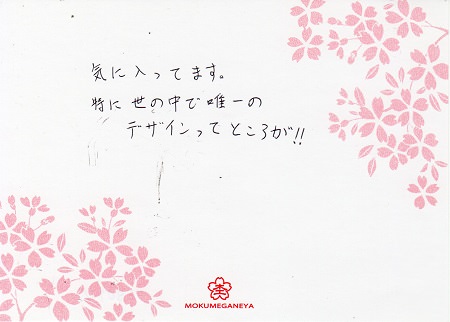 気に入ってます。
特に世の中で唯一の
デザインってところが!!
MOKUMEGANEYA